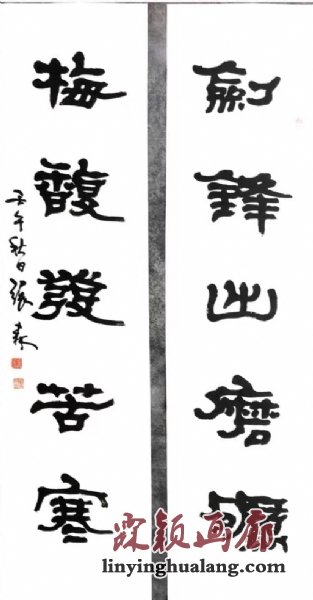 劍鋒出磨礪
梅馥發苦寒
壬午秋日張森
霖颖画廊
linyinghualang.com